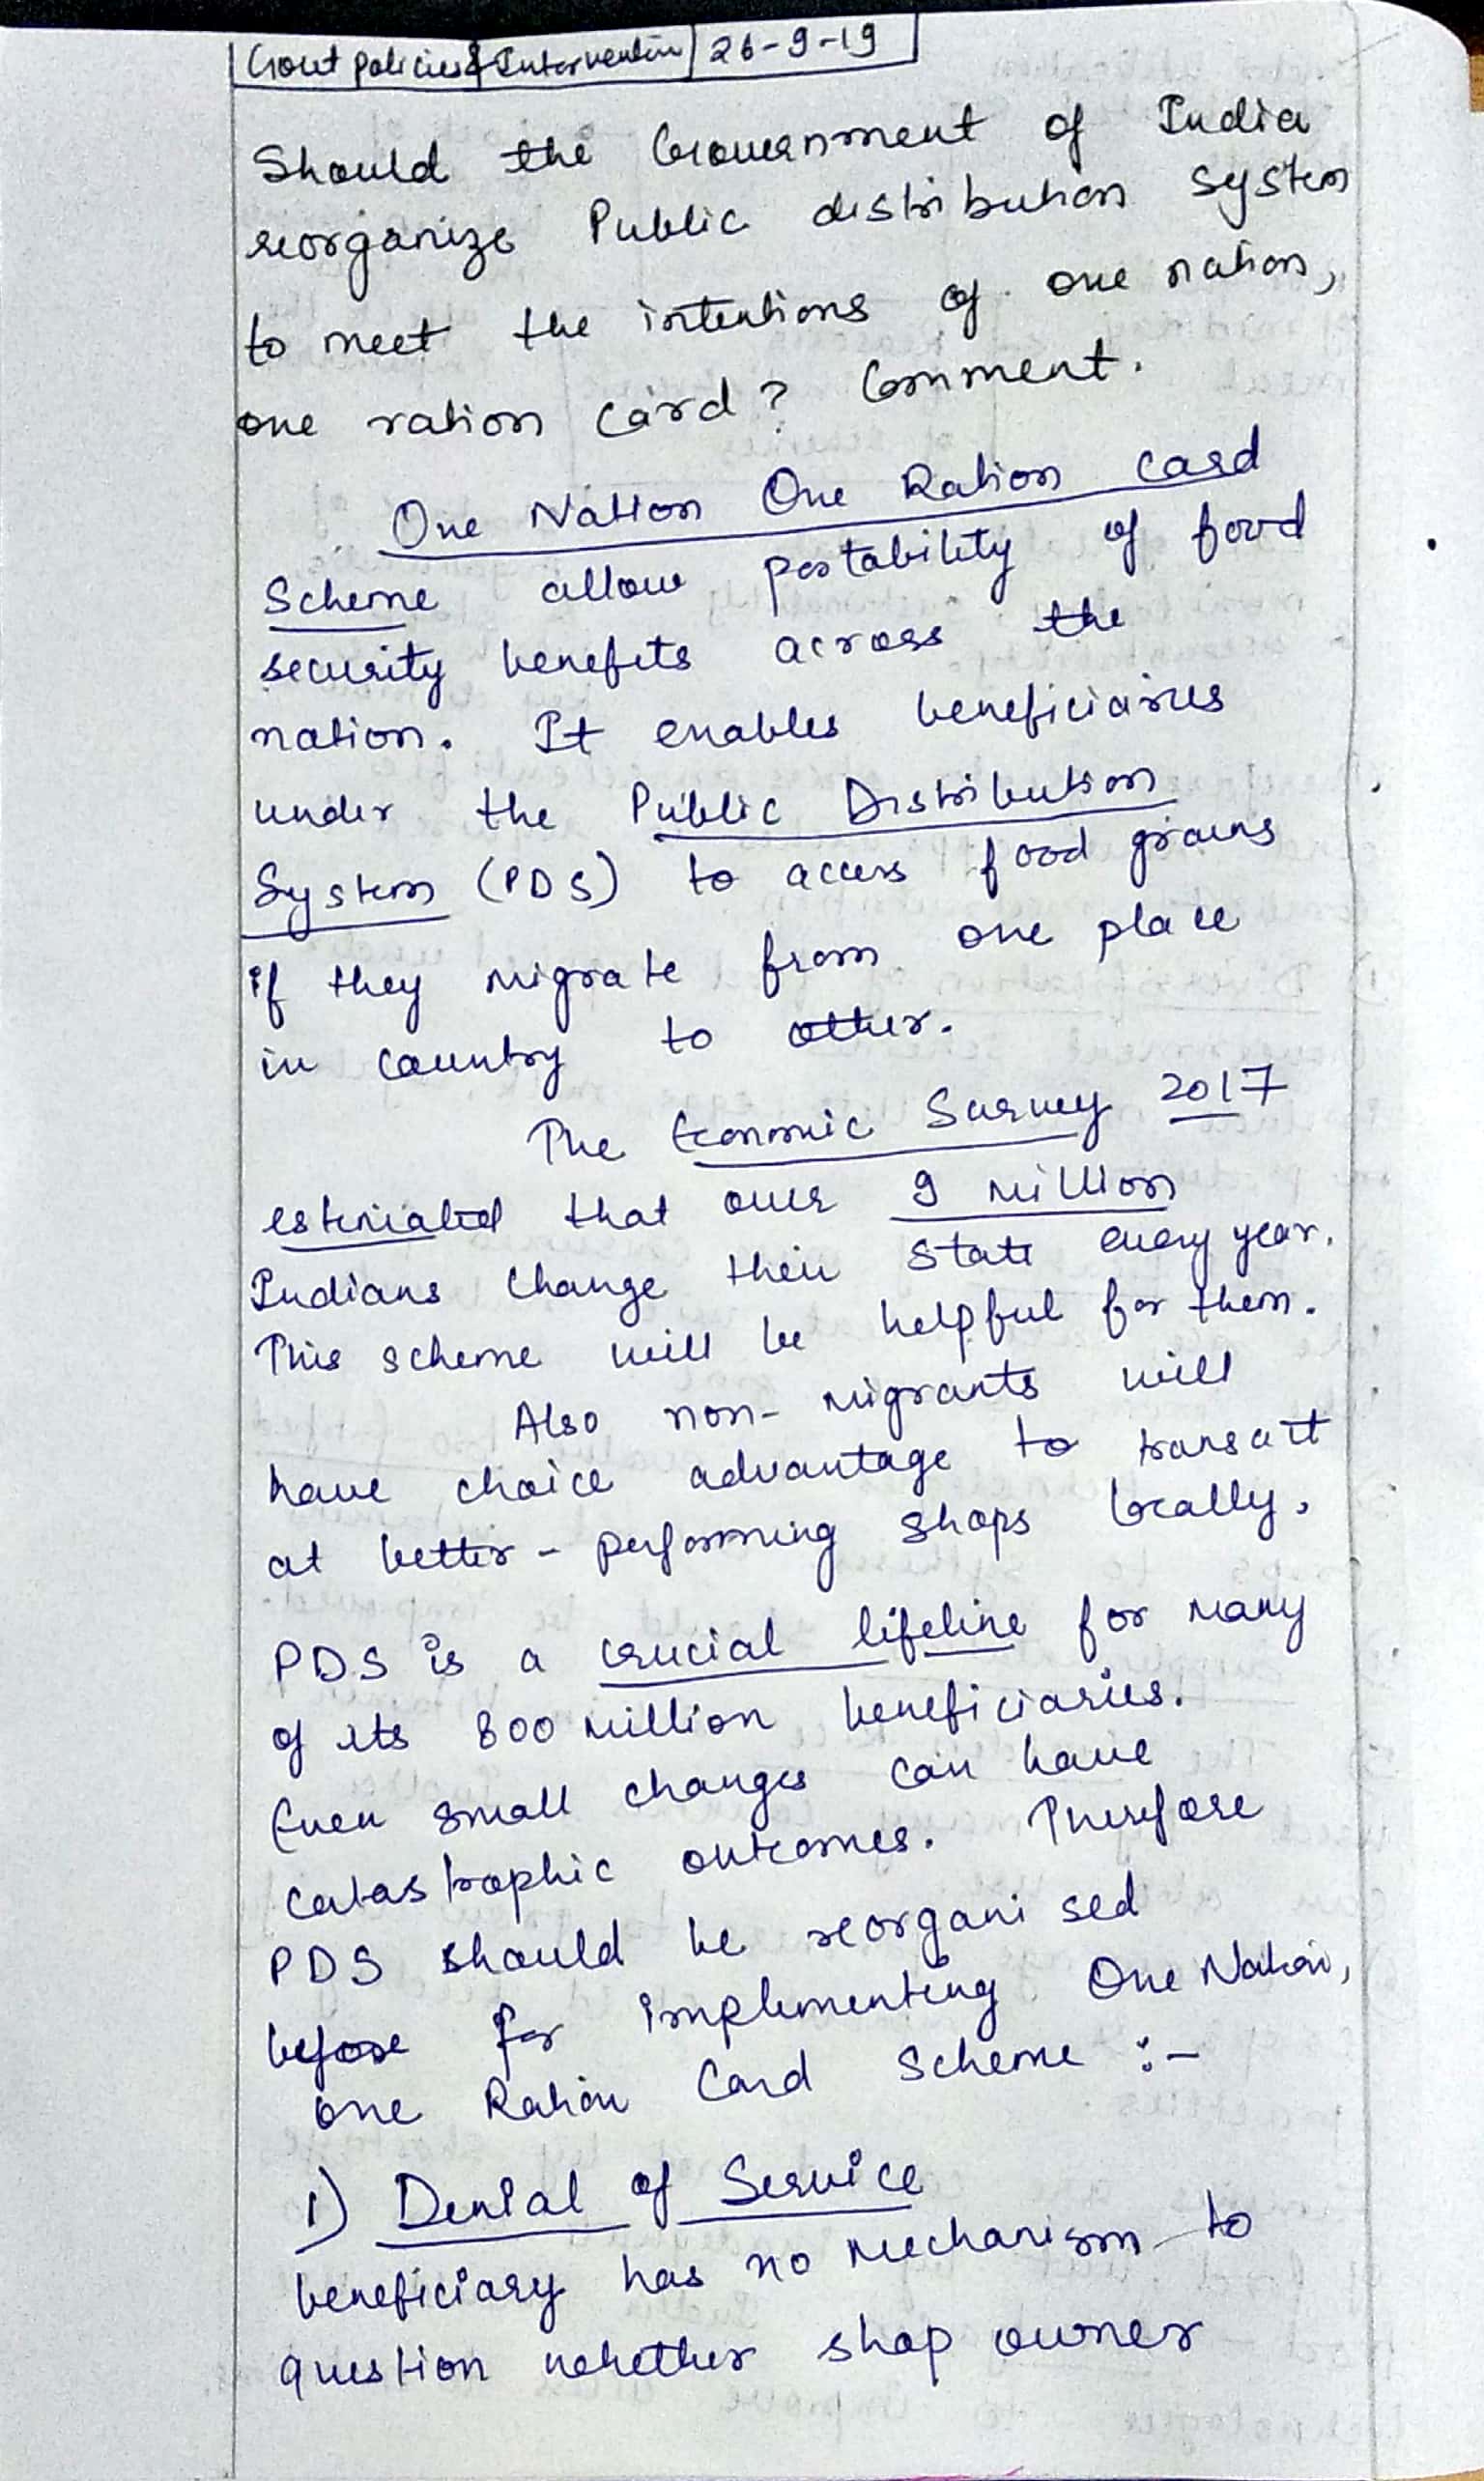 Govt policies & Intervention | 26-9-19
Should the Government of India
reorganize Public distribution system
to meet the intentions of one nation,
one ration card? Comment.
One Nation One Ration Card
Scheme allow portability of food
security benefits across the
nation. It enables beneficiaries
under the Public Distribution
System (PDS) to access food grains
if they migrate from one place
in country to other.
The Economic Survey 2017
estimated that over 9 million
Indians change their state every year.
This scheme will be helpful for them.
Also non-migrants will
have choice advantage to transact
at better-performing shops locally.
PDS is a crucial lifeline for many
of its 800 million beneficiaries.
Even small changes can have
catastrophic outcomes. Therefore
PDS should be reorganised
before for implementing One Nation,
one Ration Card Scheme :-
1) Denial of Service
beneficiary has no mechanism to
question whether shop owner